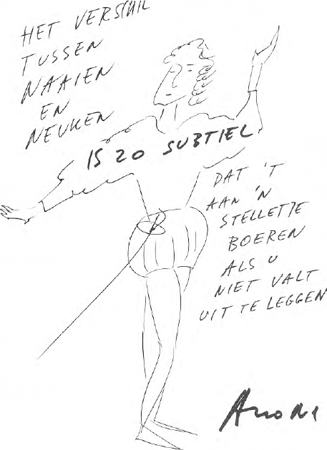 HET VERSCHIL
TUSSEN
NAAIEN
EN
NEUKEN
IS ZO SUBTIEL
DAT 'T
AAN 'N
STELLETJE
BOEREN
ALS U
NIET VALT
UIT TE LEGGEN